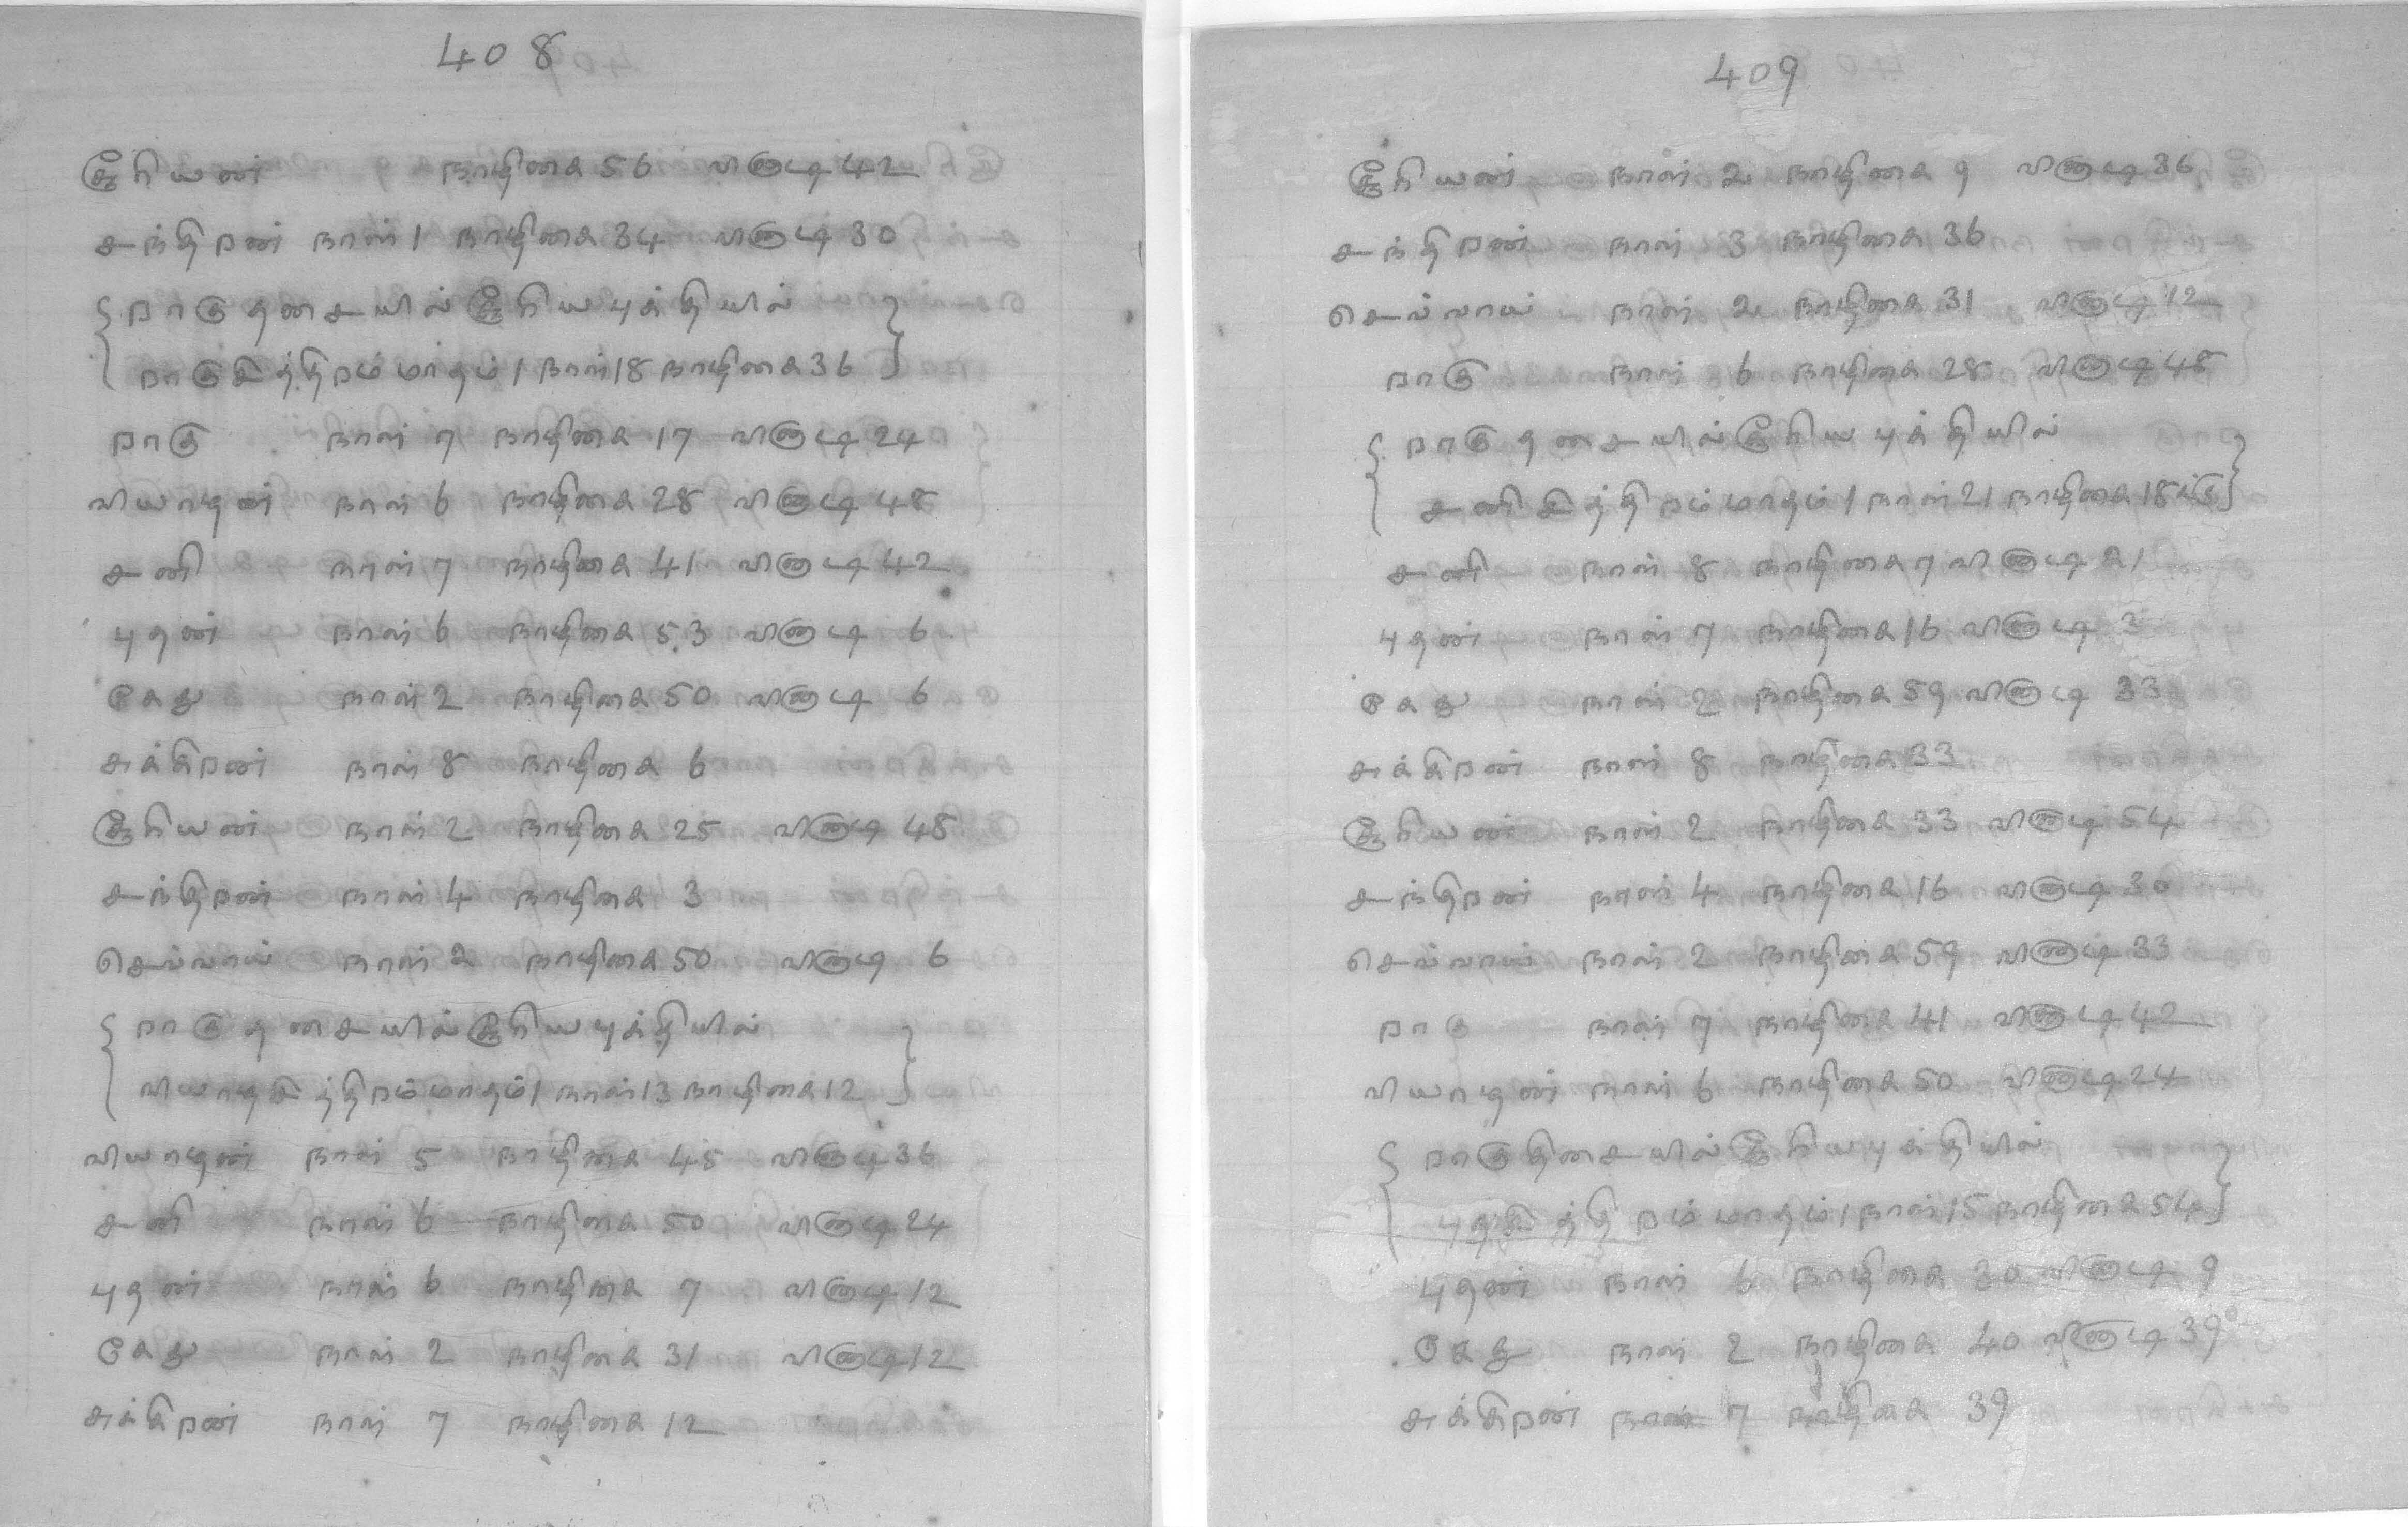 408
சூரியன் நாழிகை 56 வினாடி 42
சந்திரன் நாள் 1 நாழிகை 34 வினாடி 30
{ ராகு தசையில் சூரிய புக்தியில் }
{ ராகு சித்திரம் மாதம் 1 நாள் 18 நாழிகை 36 }
ராகு நாள் 7 நாழிகை 17 வினாடி 24
வியாழன் நாள் 6 நாழிகை 28 வினாடி 48
சனி நாள் 7 நாழிகை 41 வினாடி 42
புதன் நாள் 6 நாழிகை 53 வினாடி 6
கேது நாள் 2 நாழிகை 50 வினாடி 6
சுக்கிரன் நாள் 8 நாழிகை 6
சூரியன் நாள் 2 நாழிகை 25 வினாடி 48
சந்திரன் நாள் 4 நாழிகை 3
செவ்வாய் நாள் 2 நாழிகை 50 வினாடி 6
{ ராகு தசையில் சூரிய புக்தியில் }
{ வியாழ சித்திரம் மாதம் 1 நாள் 13 நாழிகை 12 }
வியாழன் நாள் 5 நாழிகை 45 வினாடி 36
சனி நாள் 6 நாழிகை 50 வினாடி 24
புதன் நாள் 6 நாழிகை 7 வினாடி 12
கேது நாள் 2 நாழிகை 31 வினாடி 12
சுக்கிரன் நாள் 7 நாழிகை 12
409
சூரியன் நாள் 2 நாழிகை 9 வினாடி 36
சந்திரன் நாள் 3 நாழிகை 36
செவ்வாய் நாள் 2 நாழிகை 31 வினாடி 12
ராகு நாள் 6 நாழிகை 28 வினாடி 48
{ ராகு தசையில் சூரிய புக்தியில் }
{ சனி சித்திரம் மாதம் 1 நாள் 21 நாழிகை 18 }
சனி நாள் 8 நாழிகை 7 வினாடி 21
புதன் நாள் 7 நாழிகை 16 வினாடி 3
கேது நாள் 2 நாழிகை 59 வினாடி 33
சுக்கிரன் நாள் 8 நாழிகை 33
சூரியன் நாள் 2 நாழிகை 33 வினாடி 54
சந்திரன் நாள் 4 நாழிகை 16 வினாடி 30
செவ்வாய் நாள் 2 நாழிகை 59 வினாடி 33
ராகு நாள் 7 நாழிகை 41 வினாடி 42
வியாழன் நாள் 6 நாழிகை 50 வினாடி 24
{ ராகு திசையில் சூரிய புக்தியில் }
{ புத சித்திரம் மாதம் 1 நாள் 15 நாழிகை 54 }
புதன் நாள் 6 நாழிகை 30 வினாடி 9
கேது நாள் 2 நாழிகை 40 வினாடி 39
சுக்கிரன் நாள் 7 நாழிகை 39